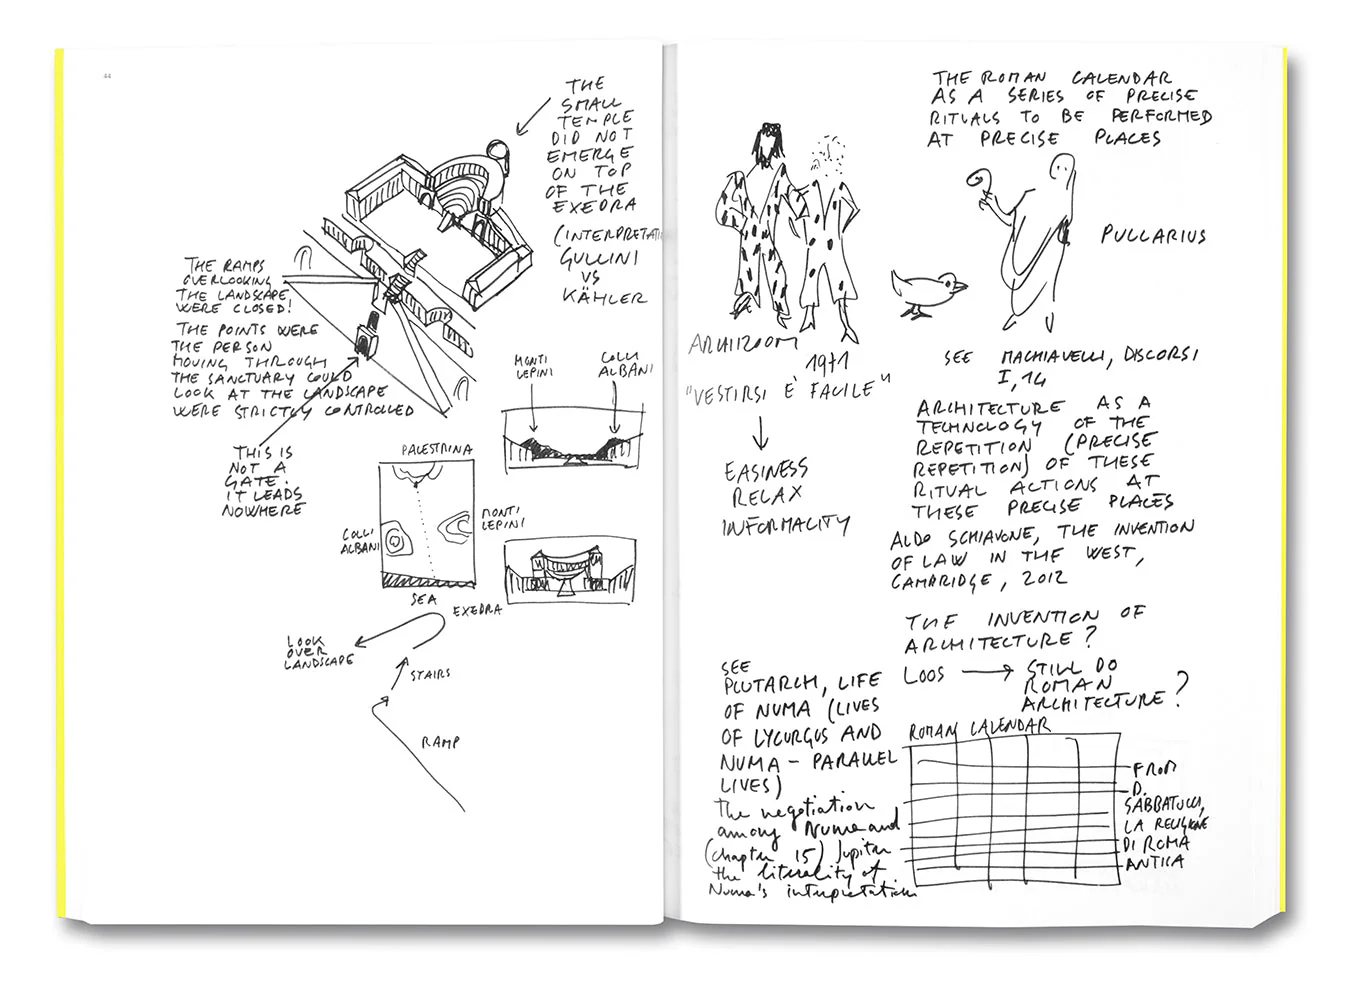 44
THE
SMALL
TEMPLE
DID NOT
EMERGE
ON TOP
OF THE
EXEDRA
(INTERPRETATI
GULLINI
VS
KÄHLER
THE RAMPS
OVERLOOKING
THE LANDSCAPE,
WERE CLOSED!
THE POINTS WERE
THE PERSON
MOVING THROUGH
THE SANCTUARY COULD
LOOK AT THE LANDSCAPE
WERE STRICTLY CONTROLLED
THIS IS
NOT A
GATE.
IT LEADS
NOWHERE
MONTI
LEPINI
COLLI
ALBANI
PALESTRINA
COLLI
ALBANI
MONTI
LEPINI
SEA
EXEDRA
LOOK
OVER
LANDSCAPE
STAIRS
RAMP
THE ROMAN CALENDAR
AS A SERIES OF PRECISE
RITUALS TO BE PERFORMED
AT PRECISE PLACES
PULLARIUS
ARCHIZOOM
1971
"VESTIRSI È FACILE"
EASINESS
RELAX
INFORMALITY
SEE MACHIAVELLI, DISCORSI
I, 14
ARCHITECTURE AS A
TECHNOLOGY OF THE
REPETITION (PRECISE
REPETITION) OF THESE
RITUAL ACTIONS AT
THESE PRECISE PLACES
ALDO SCHIAVONE, THE INVENTION
OF LAW IN THE WEST,
CAMBRIDGE, 2012
THE INVENTION OF
ARCHITECTURE?
LOOS → STILL DO
ROMAN
ARCHITECTURE?
SEE
PLUTARCH, LIFE
OF NUMA (LIVES
OF LYCURGUS AND
NUMA - PARALLEL
LIVES)
the negotiation
among Numa and
(chapter 15) Jupiter
the literality of
Numa's interpretation
ROMAN CALENDAR
FROM
D.
SABBATUCCI,
LA RELIGIONE
DI ROMA
ANTICA